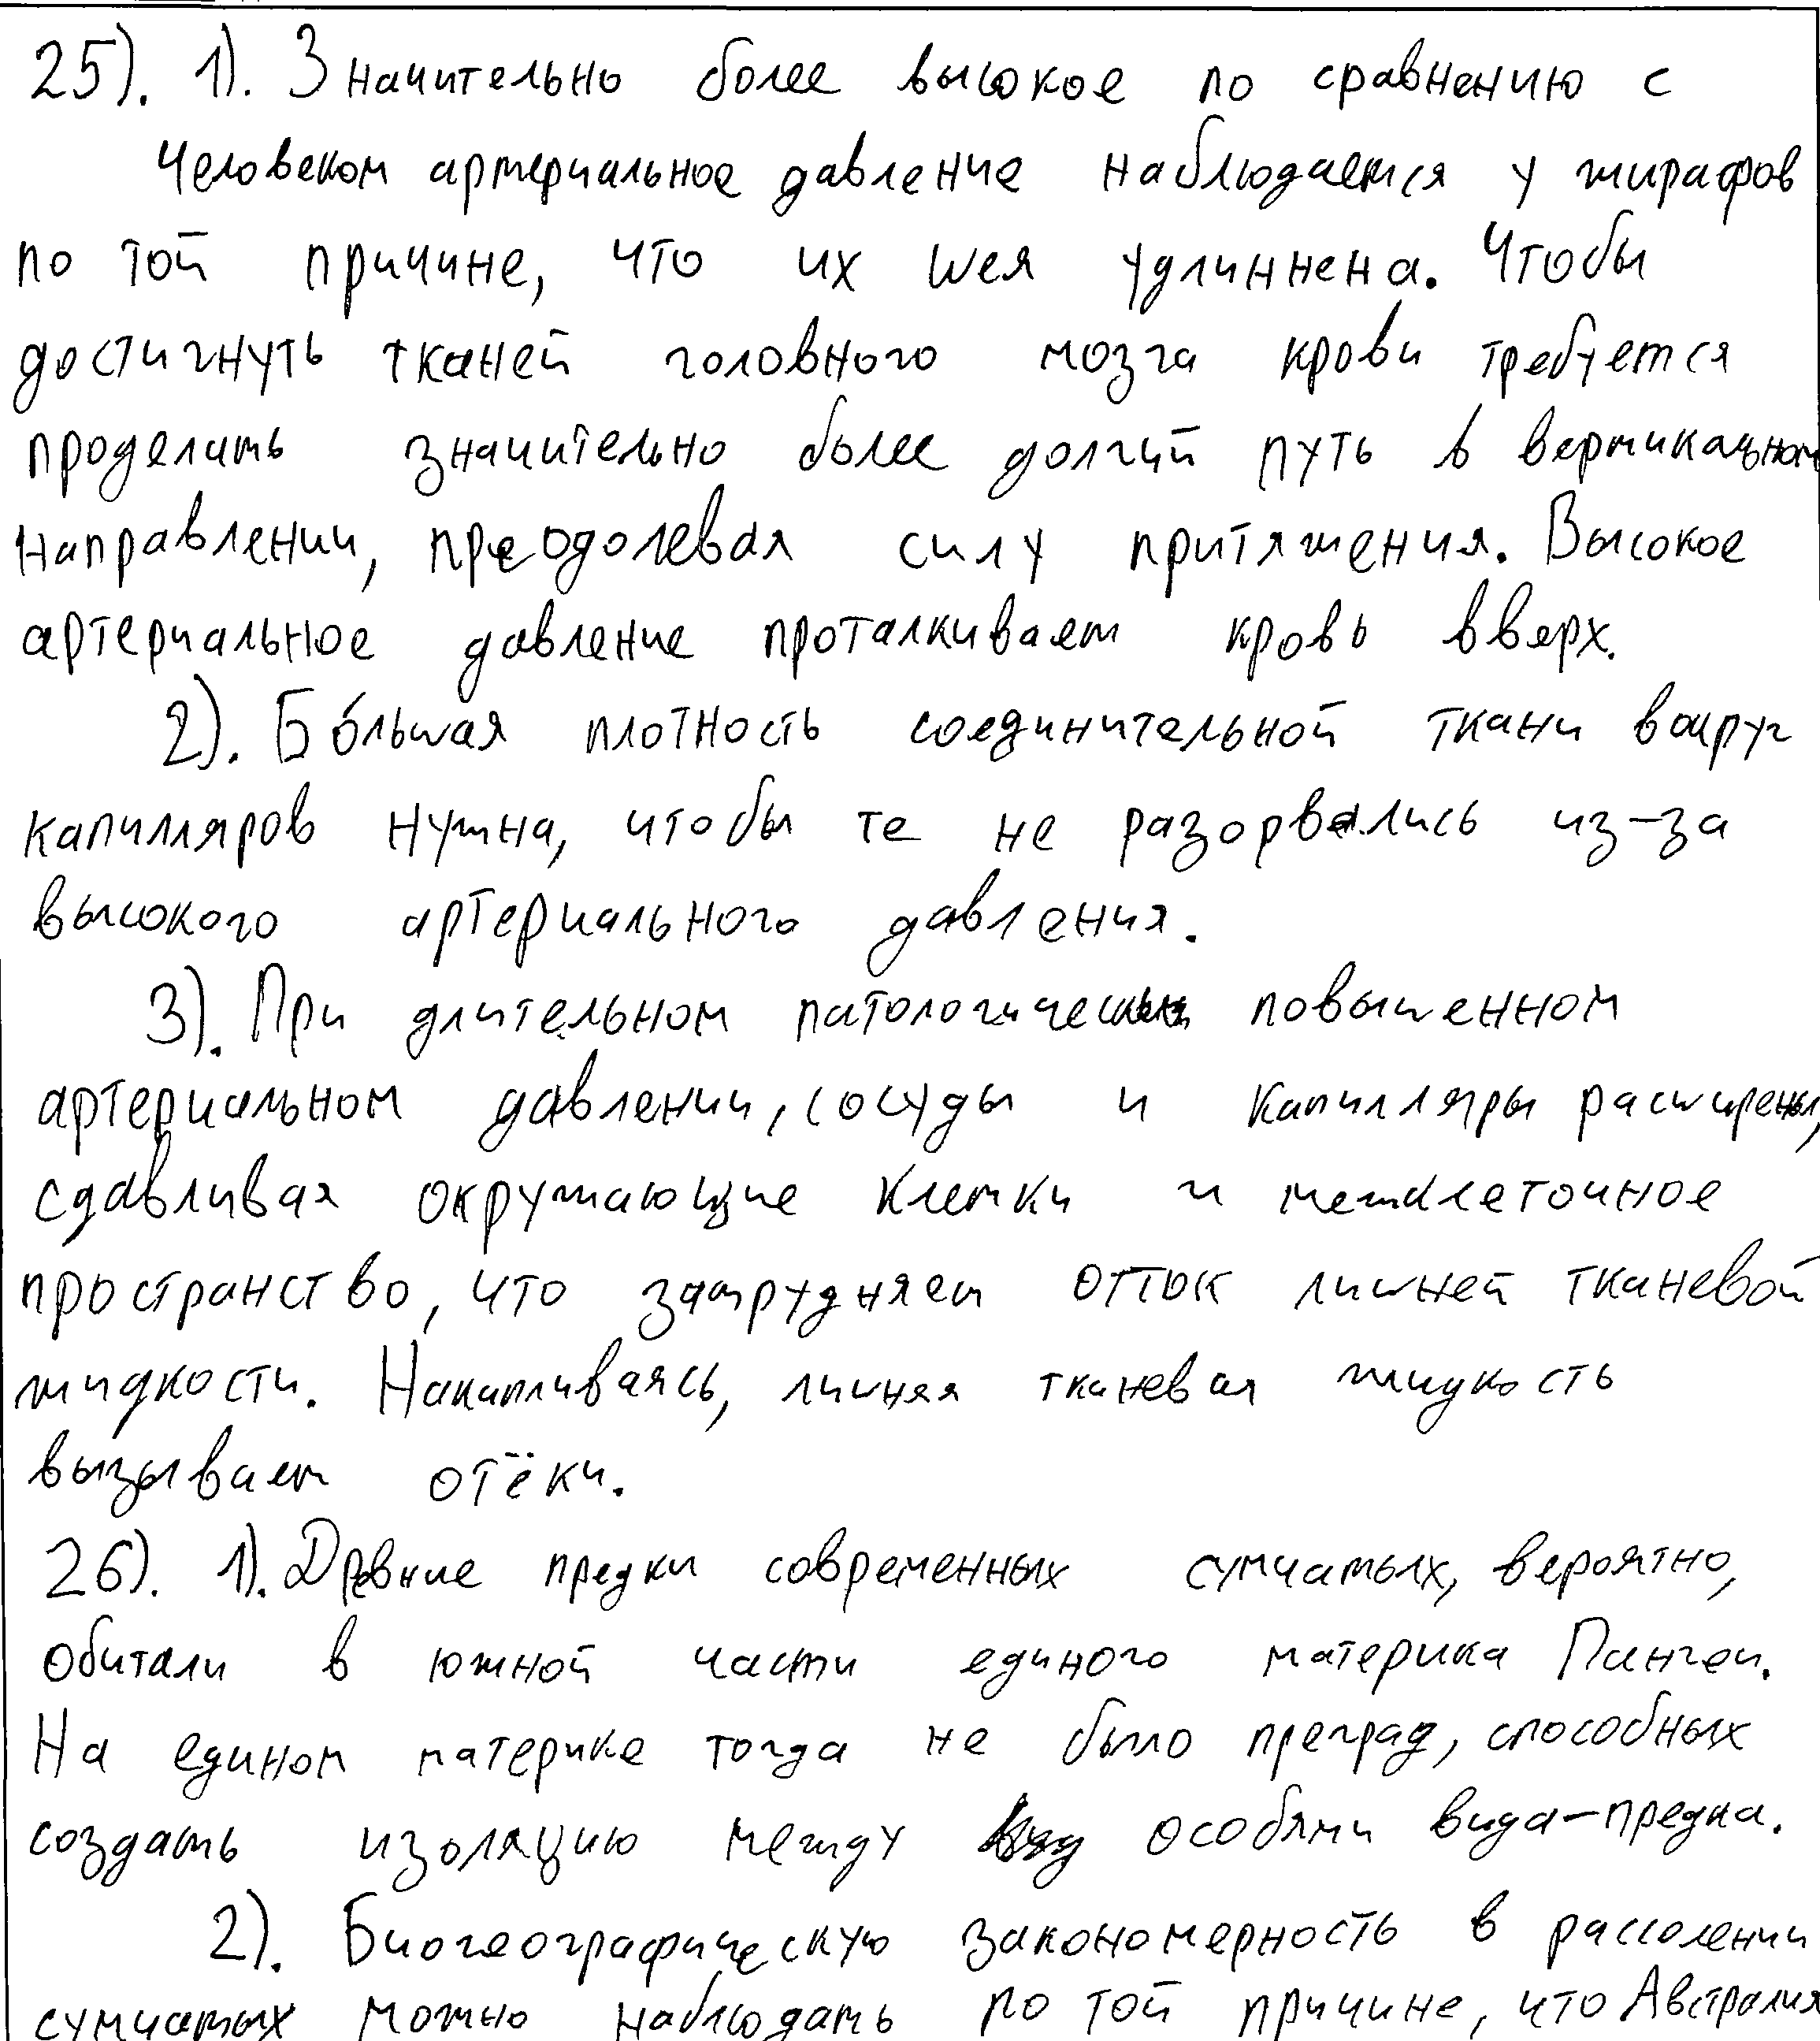 25). 1). Значительно более высокое по сравнению с
человеком артериальное давление наблюдается у жирафов
по той причине, что их шея удлиннена. Чтобы
достигнуть тканей головного мозга крови требуется
проделать значительно более долгий путь в вертикальном
направлении, преодолевая силу притяжения. Высокое
артериальное давление проталкивает кровь вверх.
2). Бо́льшая плотность соединительной ткани вокруг
капилляров нужна, чтобы те не разорвались из-за
высокого артериального давления.
3). При длительном патологически повышенном
артериальном давлении, сосуды и капилляры расширены,
сдавливая окружающие клетки и межклеточное
пространство, что затрудняет отток лишней тканевой
жидкости. Накапливаясь, лишняя тканевая жидкость
вызывает отёки.
26). 1). Древние предки современных сумчатых, вероятно,
обитали в южной части единого материка Пангеи.
На едином материке тогда не было преград, способных
создать изоляцию между особями вида-предка.
2). Биогеографическую закономерность в расселении
сумчатых можно наблюдать по той причине, что Австралия